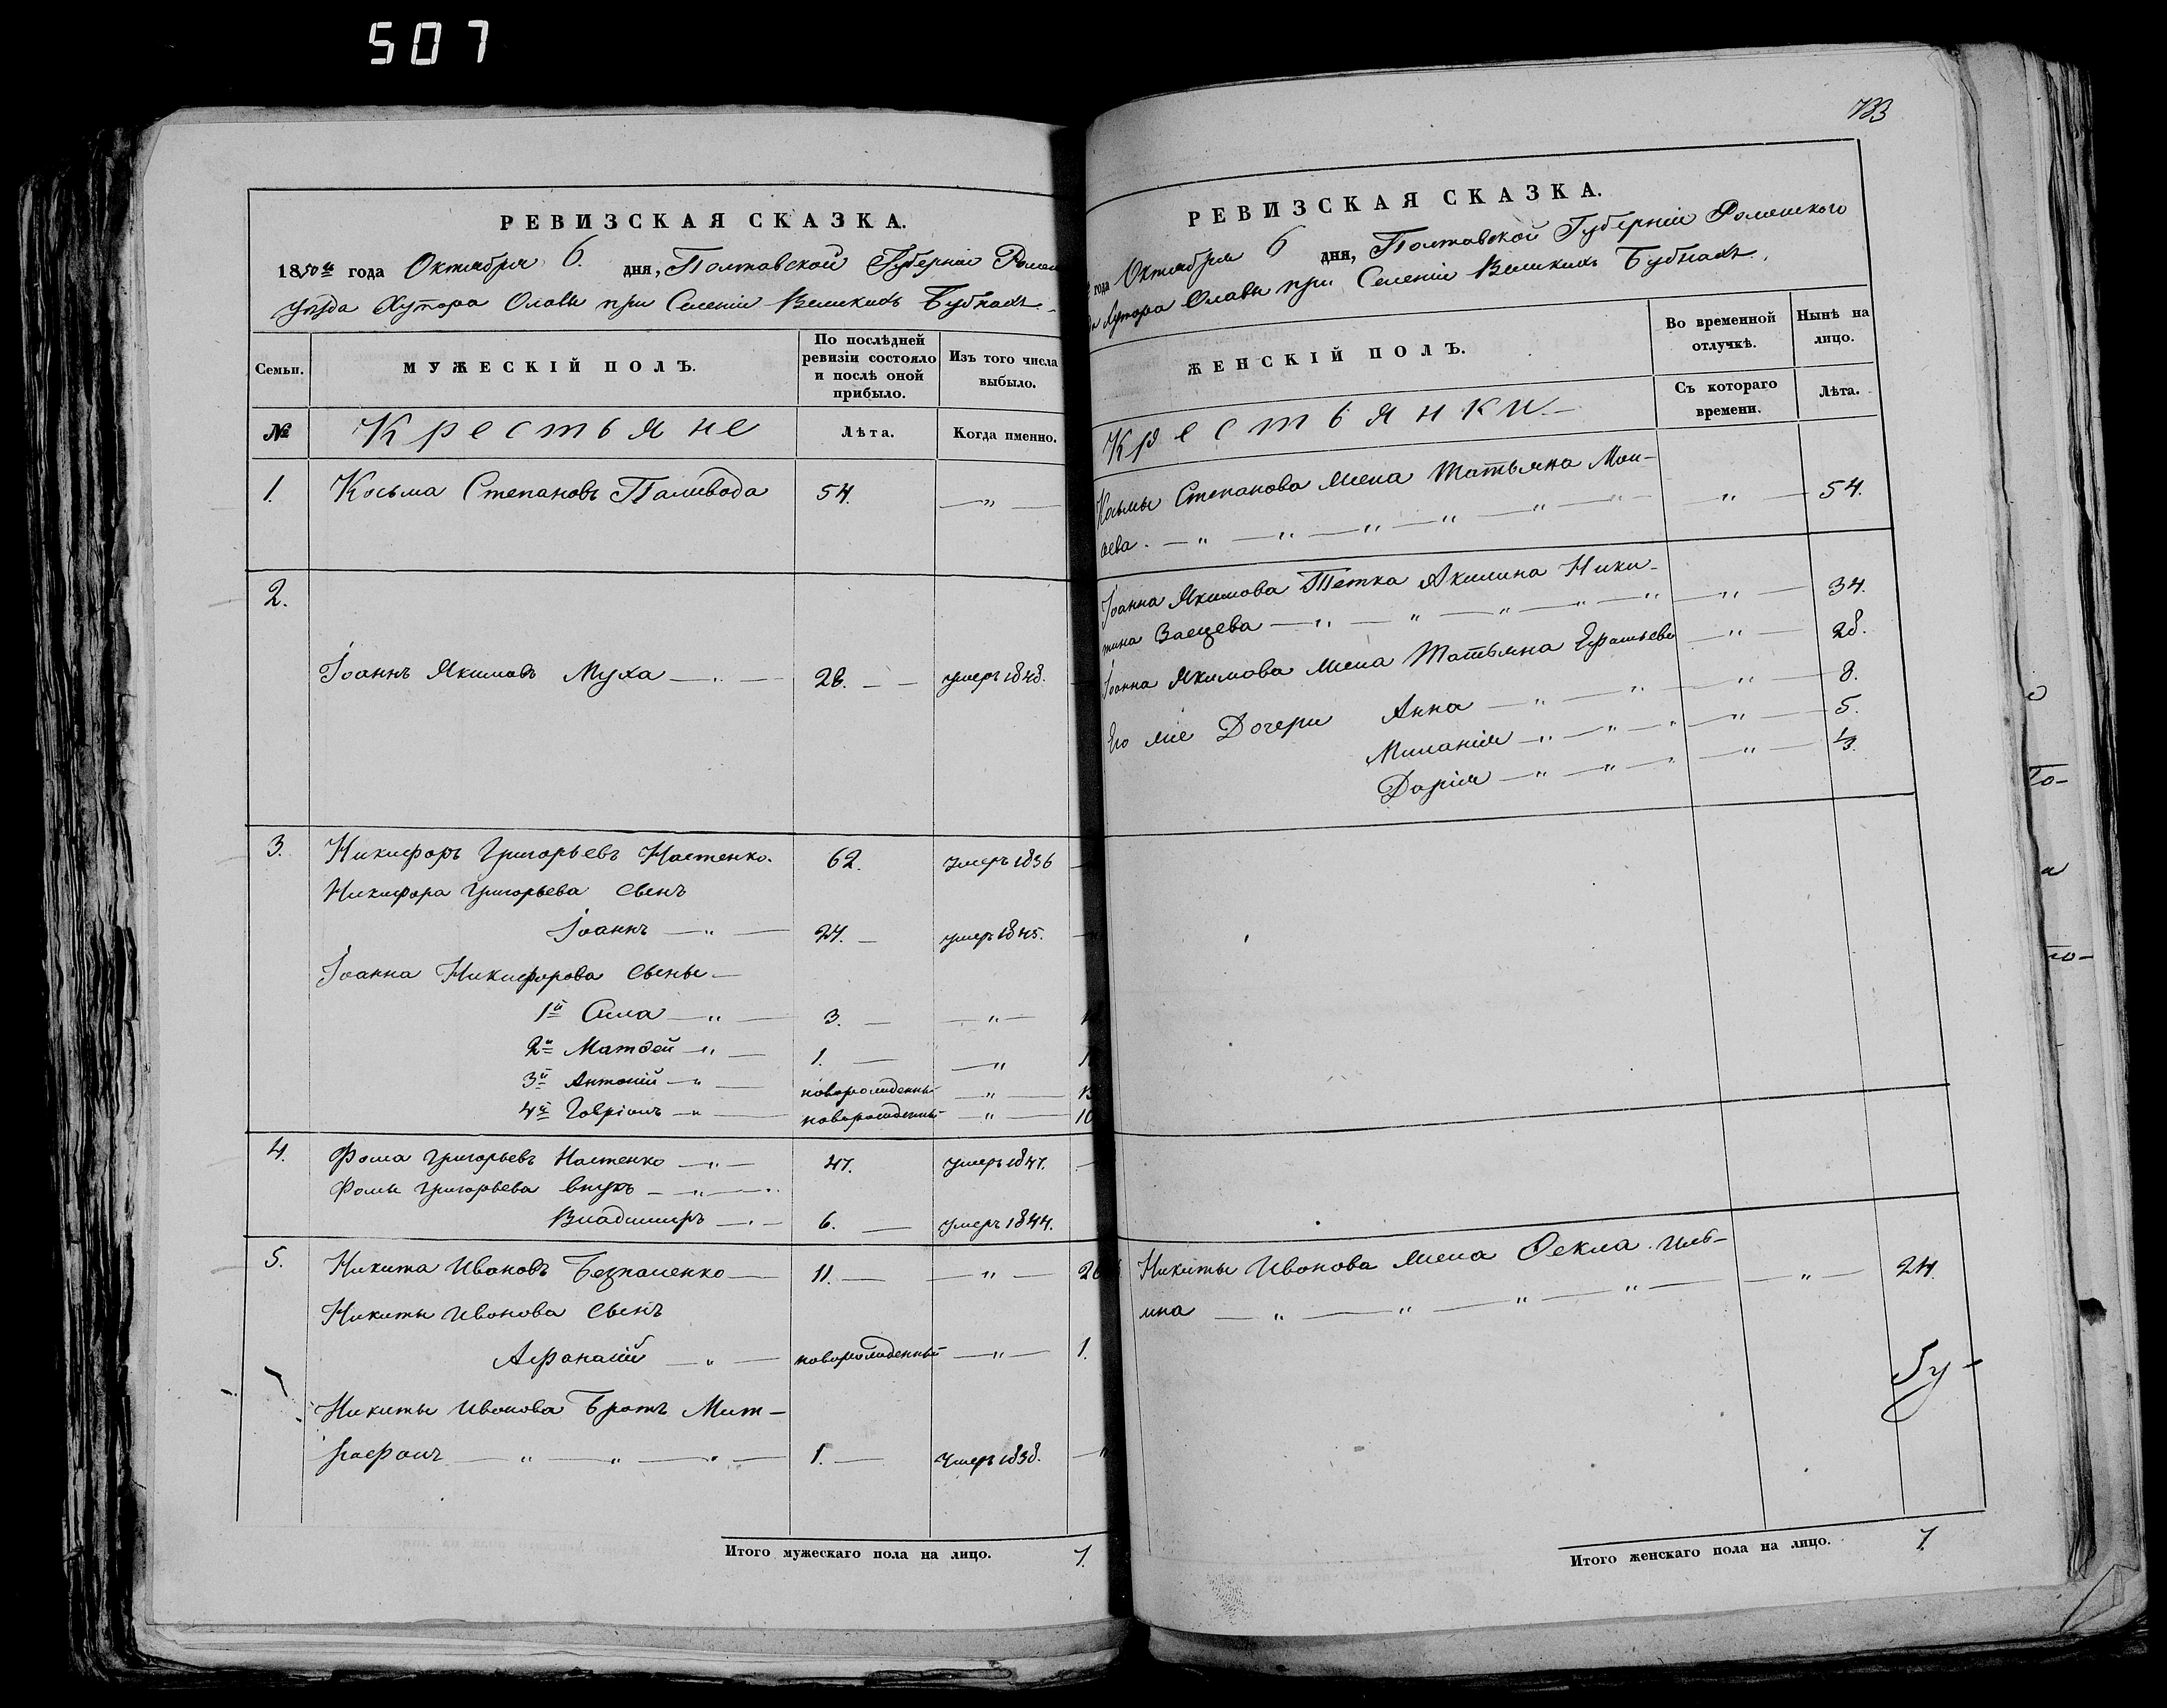 507
РЕВИЗСКАЯ СКАЗКА.
1850го года Октября 6. дня, Полтавской Губерніи Ромен
уѣзда Хутора Славы при Селеніи Великихъ Бубнахъ.
Семьи.
МУЖЕСКІЙ ПОЛЪ.
По послѣдней ревизіи состояло и послѣ оной прибыло.
Изъ того числа выбыло.
№
Крестьяне
Лѣта.
Когда именно.
1. Косьма Степановъ Паливода 54. — " —
2.
Іоаннъ Якимовъ Муха — " — 28. — умеръ 1848.
3. Никифоръ Григорьевъ Настенко. 62. умеръ 1836
Никифора Григорьева сынъ
Іоаннъ — " — 24. — умеръ 1845.
Іоанна Никифорова сыны —
1й Сила — " — 3. — — " —
2й Матѳей — " — 1. — — " —
3й Антоній — " — новорожденный — " —
4й Гавріилъ — " — новорожденный — " — 10
4. Фома Григорьевъ Настенко — " — 47. умеръ 1847.
Фомы Григорьева внукъ — " —
Владимиръ — " — 6. — умеръ 1844.
5. Никита Ивановъ Безпаленко — 11. — — " — 26
Никиты Иванова сынъ
Афанасій — " — новорожденный — " — 1.
Никиты Иванова братъ Мит-
рофанъ — " — " — " — 1. — умеръ 1838. — "
Итого мужескаго пола на лицо. 7.
733
РЕВИЗСКАЯ СКАЗКА.
года Октября 6 дня, Полтавской Губерніи Роменскаго
да Хутора Славы при Селеніи Великихъ Бубнахъ.
ЖЕНСКІЙ ПОЛЪ.
Во временной отлучкѣ.
Нынѣ на лицо.
Крестьянки.
Съ котораго времени.
Лѣта.
Косьмы Степанова жена Татьяна Мои-
сеева. — " — " — " — " — " — " — 54.
Іоанна Якимова Тетка Акилина Ники-
тина Заецева — " — " — " — " — " — " — 34.
Іоанна Якимова жена Татьяна Ефимьева — " — 28.
Его же Дочери Анна — " — " — " — 8.
Миланія — " — " — " — " — 5.
Дарія — " — " — " — " —
Никиты Иванова жена Ѳекла Иль-
ина — " — " — " — " — " — 24.
Итого женскаго пола на лицо. 7.